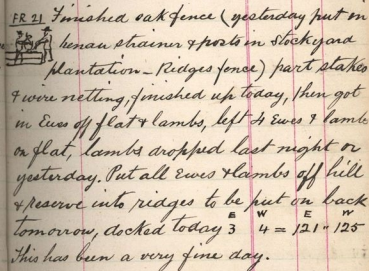 FR 21 Finished oak fence (yesterday put in
strainer & posts in Stockyard
plantation - Ridges fence) part stakes
& wire netting, finished up today, then got
in Ewes off flat & lambs, left 4 Ewes & lambs
on flat, lambs dropped last night or
yesterday. Put all Ewes & lambs off hill
& reserve into ridges to be put on back
E W E W
tomorrow, docked today 3 4 = 121 " 125
This has been a very fine day.